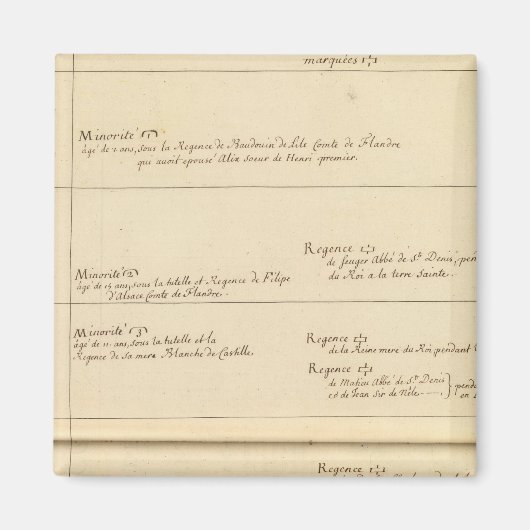 marquées
Minorité 1
âgé de 2 ans, sous la Regence de Baudouin de Lile Comte de Flandre
qui avoit epousé Alix soeur de Henri premier.
Regence
de seuger Abbé de St. Denis, pen
du Roi a la terre Sainte.
Minorité 2
âgé de 15 ans, sous la tutelle et Regence de Filipe
d'Alsace Comte de Flandre.
Minorité 3
âgé de 11 ans, sous la tutelle et la
Regence de sa mere Blanche de Castille,
Regence
de la Reine mere du Roi pendant
Regence
de Matieu Abbé de St. Denis
et de Jean Sir de Néle
pend
en
Regence